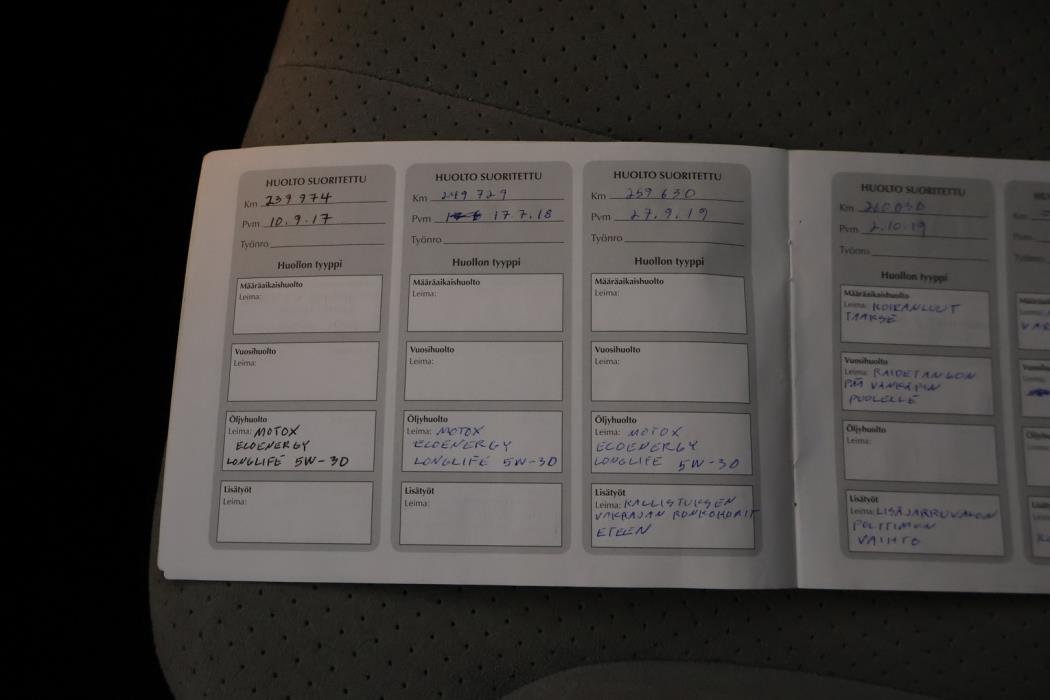 HUOLTO SUORITETTU
Km 239974
Pvm 10.9.17
Työnro
Huollon tyyppi
Määräaikaishuolto
Leima:
Vuosihuolto
Leima:
Öljyhuolto
Leima: MOTOX
ECOENERGY
LONGLIFE 5W-30
Lisätyöt
Leima:
HUOLTO SUORITETTU
Km 249729
Pvm 17.7.18
Työnro
Huollon tyyppi
Määräaikaishuolto
Leima:
Vuosihuolto
Leima:
Öljyhuolto
Leima: MOTOX
ECOENERGY
LONGLIFE 5W-30
Lisätyöt
Leima:
HUOLTO SUORITETTU
Km 259630
Pvm 27.9.19
Työnro
Huollon tyyppi
Määräaikaishuolto
Leima:
Vuosihuolto
Leima:
Öljyhuolto
Leima: MOTOX
ECOENERGY
LONGLIFE 5W-30
Lisätyöt
Leima: KALLISTUKSEN
VAKAAJAN
ETEEN
HUOLTO SUORITETTU
Km 260030
Pvm 2.10.19
Työnro
Huollon tyyppi
Määräaikaishuolto
Leima: KOIRANLUUT
TAAKSE
Vuosihuolto
Leima: RAIDETANGON
PÄÄ VÄNKÄRIN
PUOLELLE
Öljyhuolto
Leima:
Lisätyöt
Leima: LISÄJARRUVALON
POLTTIMON
VAIHTO